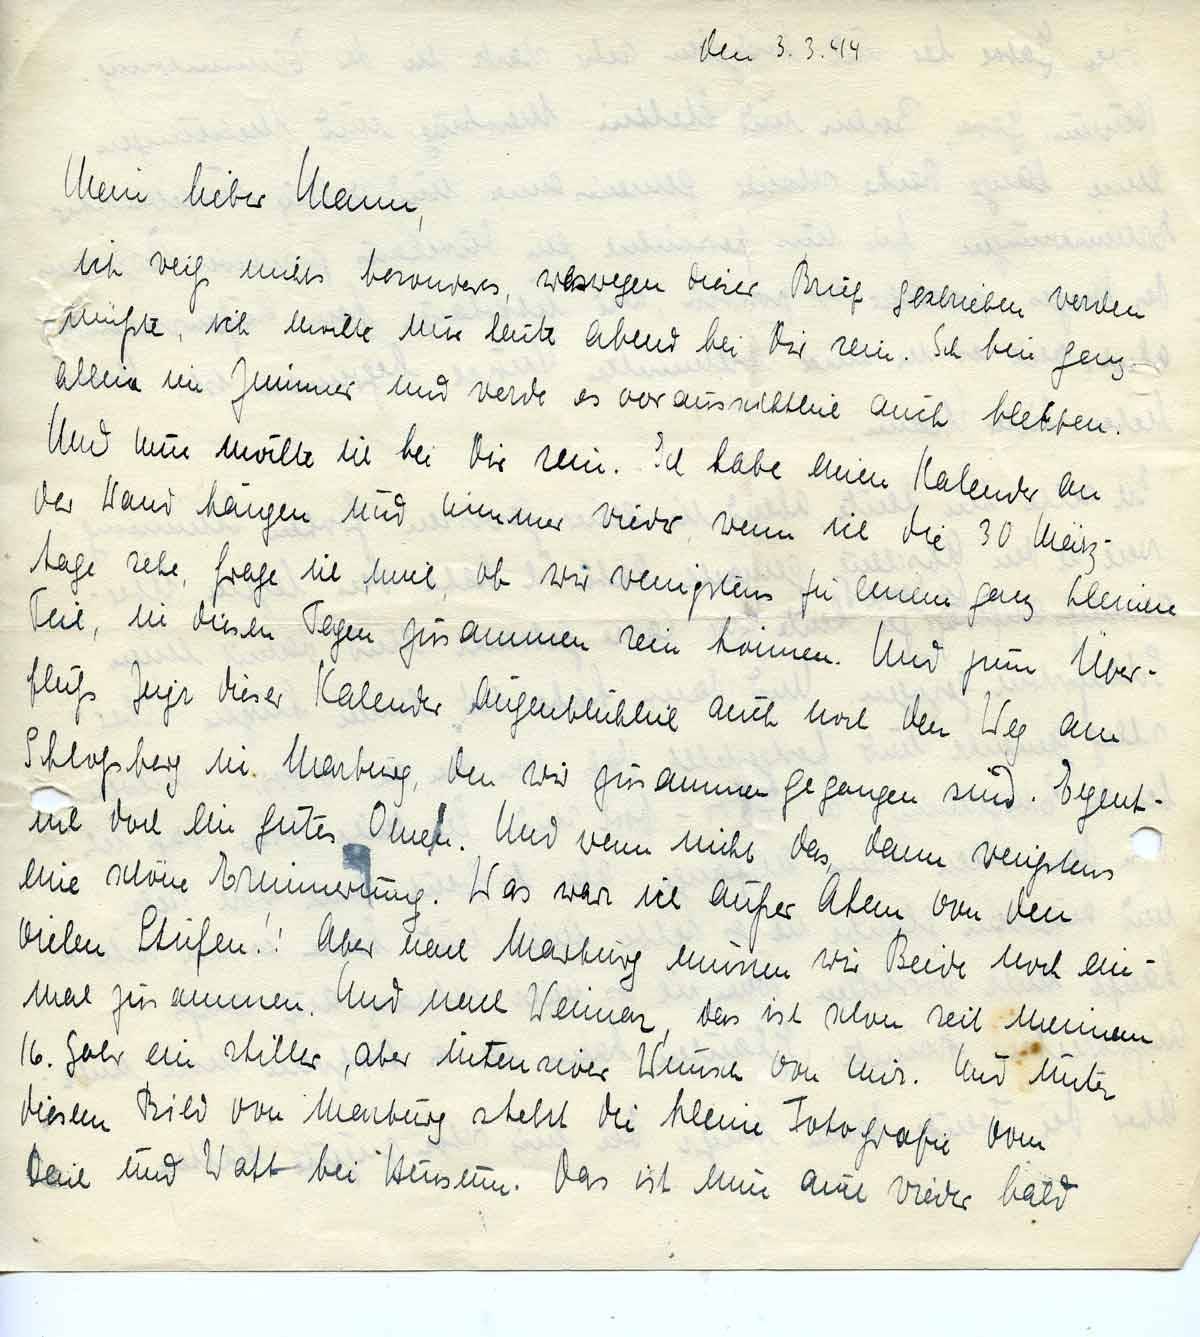 den 3.3.44
Mein lieber Mann,
ich weiß nichts besonderes, weswegen dieser Brief geschrieben werden
müßte, ich wollte nur heute abend bei Dir sein. Ich bin ganz
allein im Zimmer und werde es voraussichtlich auch bleiben.
Und nun wollte ich bei Dir sein. Ich habe einen Kalender an
der Wand hängen und immer wieder, wenn ich die 30 März-
tage sehe, frage ich mich, ob wir wenigstens zu einem ganz kleinen
Teil, in diesen Tagen zusammen sein können. Und zum Über-
fluß zeigt dieser Kalender augenblicklich auch noch den Weg am
Schloßberg in Marburg, den wir zusammen gegangen sind. Eigent-
lich doch ein gutes Omen. Und wenn nicht das, dann wenigstens
eine schöne Erinnerung. Was war ich außer Atem von den
vielen Stufen!! Aber nach Marburg müssen wir Beide noch ein-
mal zusammen. Und nach Weimar, das ist schon seit meinem
16. Jahr ein stiller, aber intensiver Wunsch von mir. Und unter
diesem Bild von Marburg steht die kleine Fotografie vom
Deich und Watt bei Husum. Das ist nun auch wieder bald